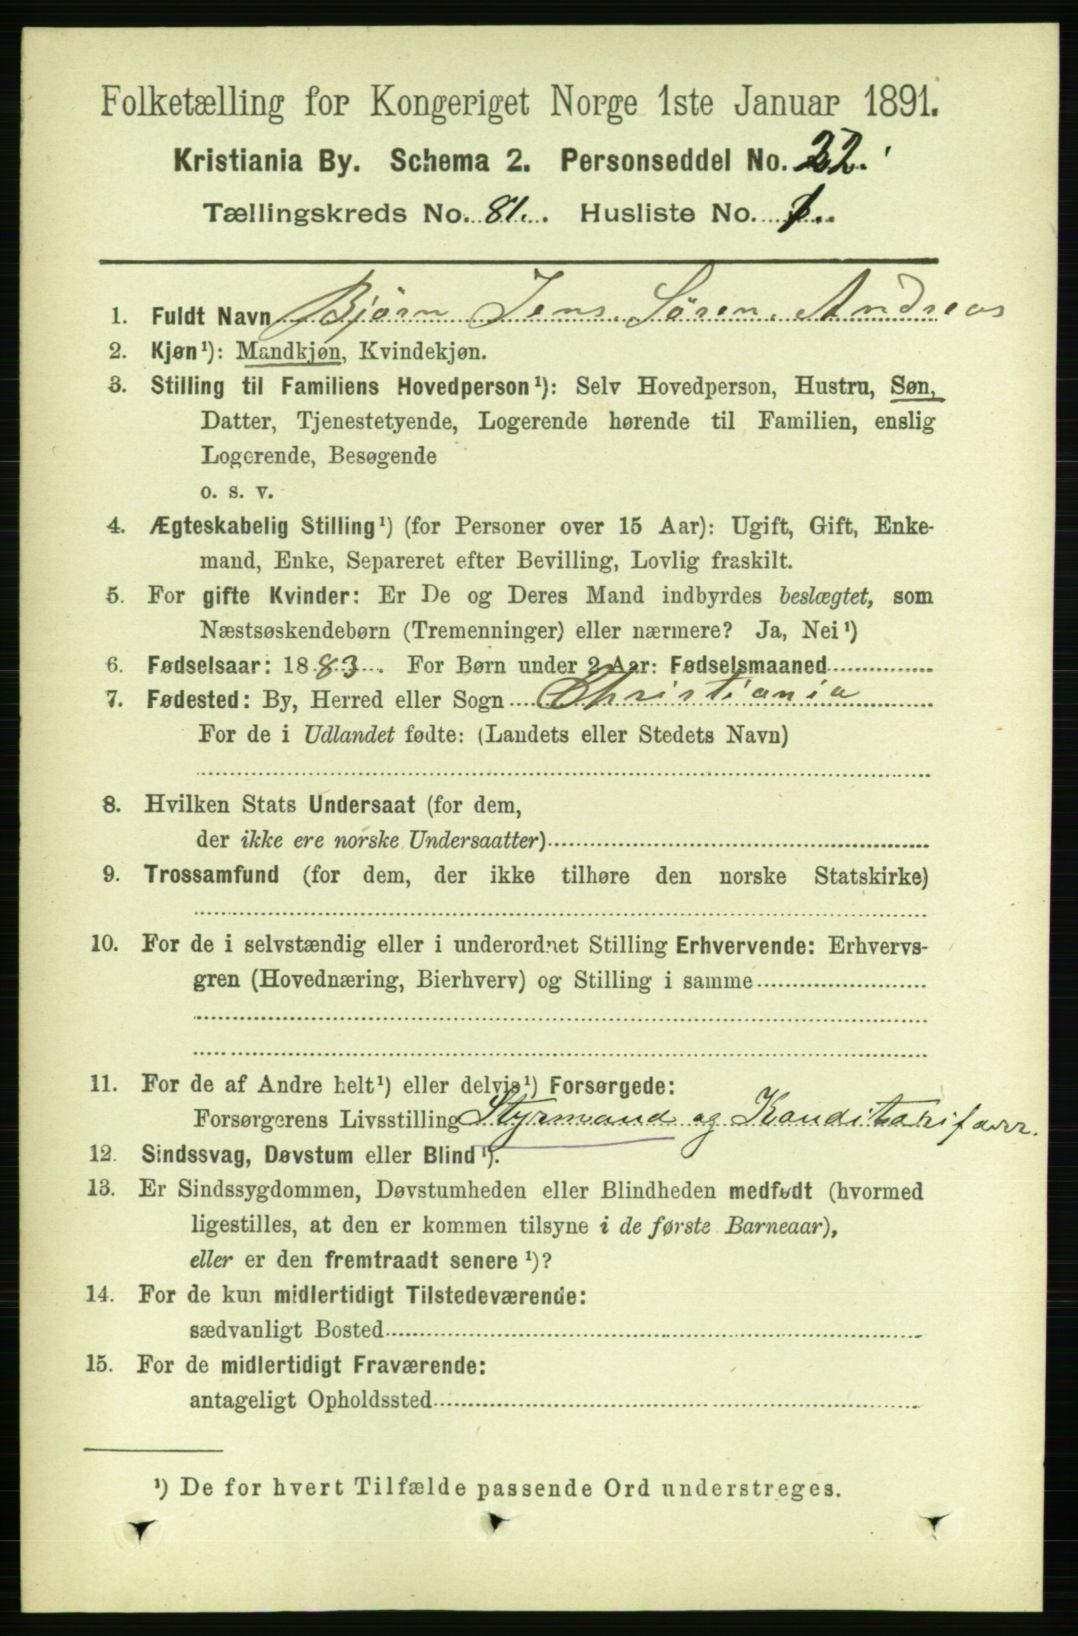 Folketælling for Kongeriget Norge 1ste Januar 1891.
Kristiania By. Schema 2. Personseddel No. 22.
Tællingskreds No. 81. Husliste No. 1.
1. Fuldt Navn Bjørn Jens Søren Andreas
2. Kjøn¹): Mandkjøn, Kvindekjøn.
3. Stilling til Familiens Hovedperson¹): Selv Hovedperson, Hustru, Søn,
Datter, Tjenestetyende, Logerende hørende til Familien, enslig
Logerende, Besøgende
o. s. v.
4. Ægteskabelig Stilling¹) (for Personer over 15 Aar): Ugift, Gift, Enke-
mand, Enke, Separeret efter Bevilling, Lovlig fraskilt.
5. For gifte Kvinder: Er De og Deres Mand indbyrdes beslægtet, som
Næstsøskendebørn (Tremenninger) eller nærmere? Ja, Nei¹)
6. Fødselsaar: 1883. For Børn under 2 Aar: Fødselsmaaned
7. Fødested: By, Herred eller Sogn Christiania
For de i Udlandet fødte: (Landets eller Stedets Navn)
8. Hvilken Stats Undersaat (for dem,
der ikke ere norske Undersaatter)
9. Trossamfund (for dem, der ikke tilhøre den norske Statskirke)
10. For de i selvstændig eller i underordnet Stilling Erhvervende: Erhvervs-
gren (Hovednæring, Bierhverv) og Stilling i samme
11. For de af Andre helt¹) eller delvis¹) Forsørgede:
Forsørgerens Livsstilling Styrmand og Konditorifor.
12. Sindssvag, Døvstum eller Blind¹).
13. Er Sindssygdommen, Døvstumheden eller Blindheden medfødt (hvormed
ligestilles, at den er kommen tilsyne i de første Barneaar),
eller er den fremtraadt senere¹)?
14. For de kun midlertidigt Tilstedeværende:
sædvanligt Bosted
15. For de midlertidigt Fraværende:
antageligt Opholdssted
¹) De for hvert Tilfælde passende Ord understreges.